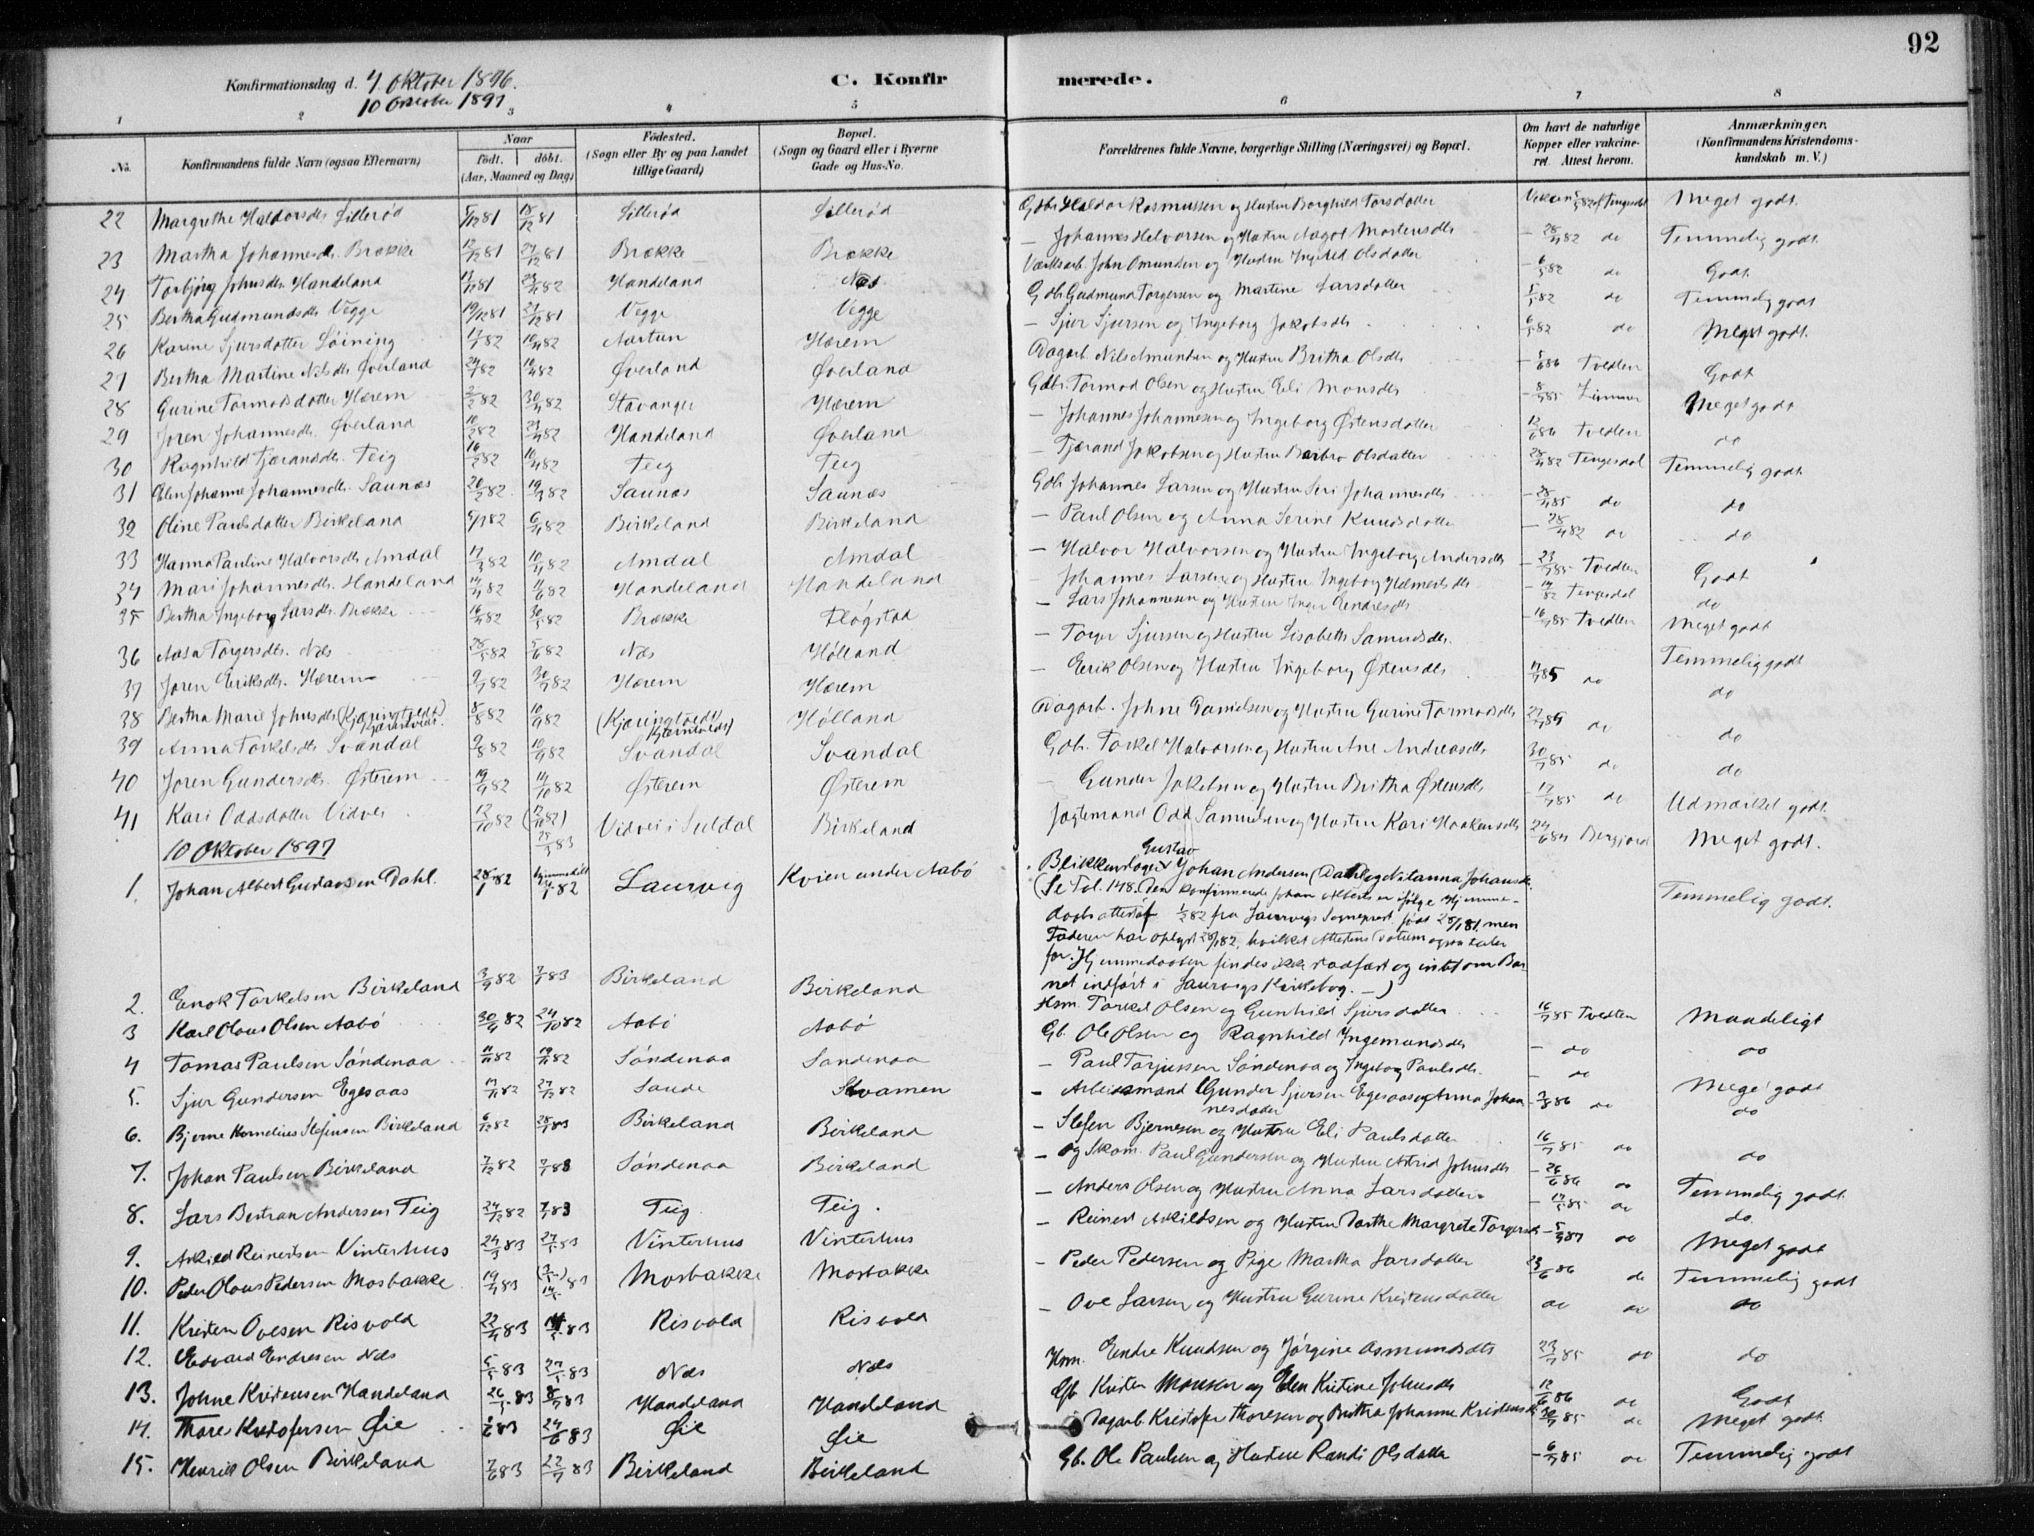 92
Konfirmationsdag d. 4. Oktober 1896.
10 Oktober 1897
C. Konfir merede.
1 2 3 4 5 6 7 8
No. Konfirmandens fulde Navn (ogsaa Efternavn) Naar født. døbt. (Aar, Maaned og Dag) Fødested. (Sogn eller By og paa Landet tillige Gaard) Bopæl. (Sogn og Gaard eller i Byerne Gade og Hus-No. Forældrenes fulde Navne, borgerlige Stilling (Næringsvei) og Bopæl. Om havt de naturlige Kopper eller vakcineret. Attest herom. Anmærkninger, (Konfirmandens Kristendomskundskab m. V.)
22 Margrethe Haldorsdtr Lillerød 5/12 81 18/12 81 Lillerød Lillerød Gdbr Haldor Rasmussen og Hustru Borghild Torsdatter Meget godt.
23 Martha Johannesdtr. Brække 12/12 81 27/12 81 Brække Brække – Johannes Halvorsen og Hustru Aagot Mortensdtr – 28/4 82 do Temmelig godt
24 Torbjørg Johnsdtr. Handeland Handeland Næs Værksarb. John Omundsen og Hustru Ingrid Olsdatter – 6/5 82 do Godt
25 Bertha Gudmundsdtr Vegge 19/12 81 27/12 81 Vegge Vegge Gdbr Gudmund Torgersen og Martine Larsdatter 5/5 82 do Temmelig godt
26 Karine Sjursdatter Løining 17/1 82 10/4 82 Aartun Hærem – Sjur Sjursen og Ingeborg Jakobsdtr 6/5 82 do Meget godt.
27 Bertha Martine Nilsdtr Øverland 24/1 82 10/4 82 Øverland Øverland Dagarb. Nils Amundsen og Hustru Britha Olsdtr – 5/6 86 Tvedten Godt
28 Gurine Tormodsdatter Hærem 2/2 82 30/4 82 Stavanger Hærem Gdbr. Tormod Olsen og Hustru Eli Monsdtr – 8/7 85 Meget godt
29 Joren Johannesdtr. Øverland 10/2 82 Handeland Øverland – Johannes Johannesen og Ingeborg Østensdatter 12/6 86 Tvedten do
30 Ragnhild Tjærandsdtr. Teig 16/2 82 10/4 82 Teig Teig – Tjærand Jakobsen og Hustru Barbro Olsdatter 28/4 82 Tengesdal Temmelig godt
31 Elen Johanne Johannesdtr. Saunæs 20/2 82 Saunæs Saunæs Gdb. Johannes Larsen og Hustru Siri Johannesdtr – 28/7 85 do do
32 Oline Paulsdatter Birkeland 6/4 82 Birkeland Birkeland – Paul Olsen og Anna Serine Knudsdatter – 28/4 82 do do
33 Hanna Pauline Halvorsdtr Amdal 17/3 82 10/4 82 Amdal Amdal – Halvor Halvorsen og Hustru Ingeborg Andersdtr – 23/7 85 Tvedten Godt
34 Mari Johannesdtr. Handeland 14/4 82 11/6 82 Handeland Handeland Johannes Larsen og Hustru Ingeborg Helmersdtr Tengesdal do
35 Bertha Ingeborg Larsdtr. Brække 16/4 82 30/5 82 Brække Fløgstad – Lars Johannesen og Hustru Inger Endresdtr – 16/7 85 Tvedten Meget godt
36 Aasa Torgersdtr. Næs 28/5 82 5/6 82 Næs Hølland – Torger Sjursen og Hustru Lisabeth Samuelsdtr. Temmelig godt
37 Joren Eriksdtr. Hærem 9/7 82 30/7 82 Hærem Hærem – Erik Olsen og Hustru Ingeborg Østensdtr 17/7 85 do do
38 Bertha Marie Johnsdtr (Kjæringtvedt) 8/8 82 10/9 82 (Kjæringtvedt) Hølland Dagarb. Johne Danielsen og Hustru Gurine Tormodsdtr do do
39 Anna Torkelsdtr Svandal 9/8 82 10/9 82 Svandal Svandal Gdb. Torkel Halvorsen og Hustru Ane Andreasdtr 30/7 85 do do
40 Joren Gundersdtr. Østerem 19/9 82 Østerem Østerem – Gunder Jakobsen og Hustru Britha Østensdtr – 17/7 85 do Udmærket godt.
41 Kari Oddsdatter Vidvei 12/10 82 Vidvei i Suldal Birkeland Jægtemand Odd Samuelsen og Hustru Kari Haakensdtr Meget godt.
10 Oktober 1897
1. Johan Albert Gustavsen Dahl. 28/1 82 Laurvig Kvien under Aabø Blikkenslager Gustav Johan Andersen (Dahl) og Nilanna Johansdt.
(Se Fol. 148. Den konfirmerede Johan Alberts er ifølge Hjemme- Temmelig godt.
daabsattest af 1/2 82 fra Laurvigs Sogneprest født 28/1 81, men
Faderen har oplyst 28/1 82, hvilket Attestens Datum ogsaa taler
for. Hjemmedaaben findes ikke stadfæst og intet om Bar-
net indført i Laurvigs Kirkebog. –)
2. Enok Torkelsen Birkeland 3/9 82 7/1 83 Birkeland Birkeland Hsm. Torkel Olsen og Gunhild Sjursdatter 16/7 85 Tvedten Maadeligt
3 Karl Olaus Olsen Aabø 30/9 82 24/10 82 Aabø Aabø Gb. Ole Olsen og Ragnhild Ingemundsdtr – do do
4 Tomas Paulsen Søndenaa 11/11 82 19/11 82 Søndenaa Søndenaa – Paul Torjussen Søndenaa og Ingeborg Paulsdtr. – do
5. Sjur Gundersen Egesaas 17/11 82 27/12 82 Saude Svamen – Arbeidsmand Gunder Sjursen Egesaas og Anna Johan- 7/8 86 do Meget godt
nesdatter
6. Bjerne Kornelius Stefensen Birkeland 6/12 82 28/1 83 Birkeland Birkeland – Stefen Bjernesen og Hustru Eli Paulsdatter 16/7 85 do do
7. Johan Paulsen Birkeland 7/12 82 7/1 83 Søndenaa Birkeland – og Skom. Paul Gundersen og Hustru Astrid Johnsdtr – 26/6 86 do do
8. Lars Bertran Andersen Teig 24/12 82 7/1 83 Teig Teig. – Anders Olsen og Hustru Anna Larsdatter – 17/7 85 do Temmelig godt
9. Askild Reinertsen Vinterhus 24/3 83 27/5 83 Vinterhus Vinterhus – Reinert Askildsen og Hustru Dorthe Margrete Torgersdt do Meget godt
10. Peder Olaus Pedersen Mosbakke 19/4 83 Mosbakke Mosbakke – Peder Pedersen og Pige Martha Larsdatter 23/6 86 do Temmelig godt
11. Kristen Ovesen Risvold 22/4 83 Risvold Risvold – Ove Larsen og Hustru Gurine Kristensdatter do do do
12. Edvard Endresen Næs 5/5 83 27/5 83 Næs Næs Hsm. Endre Knudsen og Jørgine Osmundsdtr 23/7 85 do do
13. Johne Kristensen Handeland 26/5 83 8/7 83 Handeland Handeland Gb. Kristen Monsen og Elen Kristine Johnsdtr 12/6 86 do Godt
14. Thore Kristofersen Øie 24/6 83 Øie Øie Dagarb. Kristofer Thoresen og Britha Johanne Kristensdtr do Meget godt
15. Henrik Olsen Birkeland 7/6 83 22/7 83 Birkeland Birkeland Gb. Ole Paulsen og Hustru Randi Olsdatter – 6/7 85 do Temmelig godt